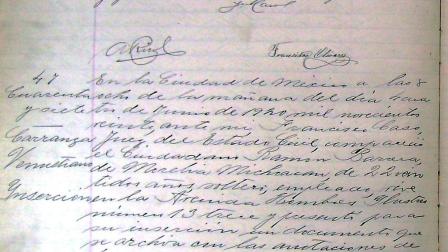 A. Ruz Francisco Olivares
47 En la Ciudad de México a las 8
Cuarenta ocho de la mañana del día
y siete de Junio de 1920 mil novecientos
veinte, ante mí, Francisco Caso,
Carranza Juez del Estado Civil, compareció
Venustiano el Ciudadano Ramón Barrera
de Morelia Michoacán, de 22 veinte
dos años, soltero, empleado, vive
Inserción en la Avenida Hombres Ilustres
número 13 trece y presentó para
su inserción un documento que
se archiva con las anotaciones de